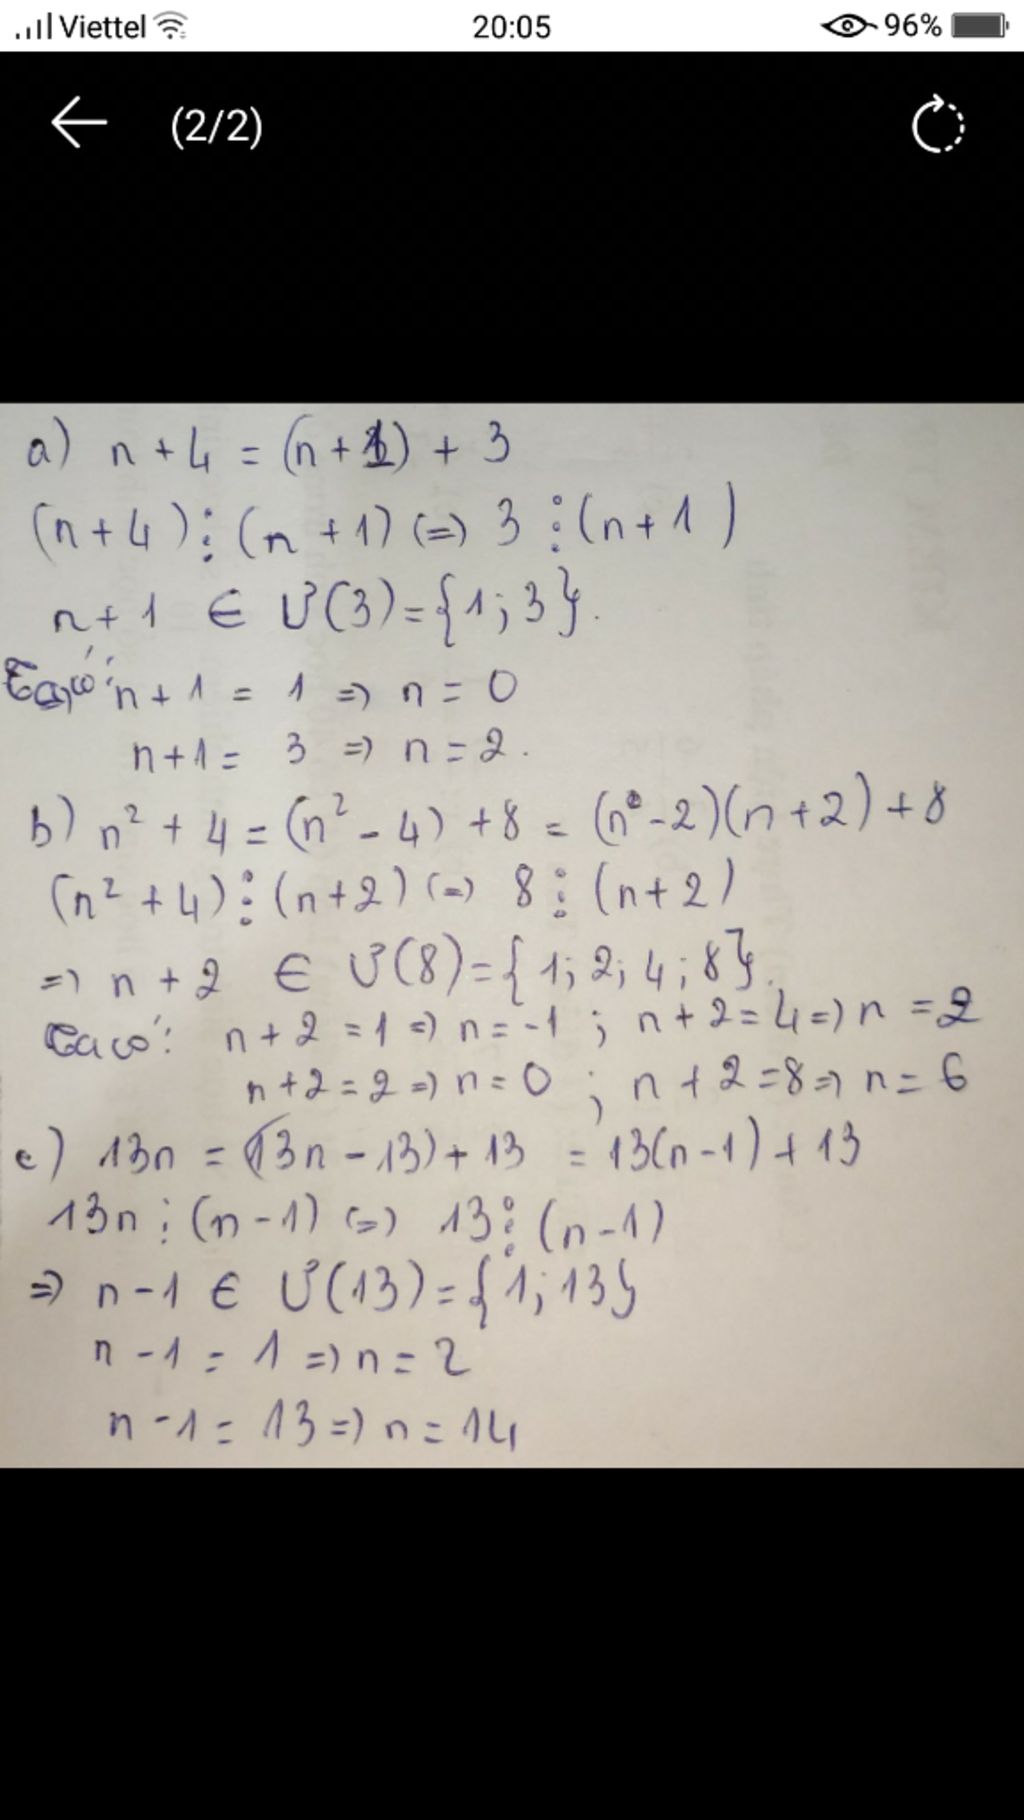 Viettel 20:05 96%
(2/2)
a) n + 4 = (n + 1) + 3
(n + 4) ⋮ (n + 1) (=) 3 ⋮ (n + 1)
n + 1 ∈ Ư(3) = {1; 3}.
Ta có: n + 1 = 1 => n = 0
n + 1 = 3 => n = 2.
b) n² + 4 = (n² - 4) + 8 = (n - 2)(n + 2) + 8
(n² + 4) ⋮ (n + 2) (=) 8 ⋮ (n + 2)
=> n + 2 ∈ Ư(8) = {1; 2; 4; 8}.
Ta có: n + 2 = 1 => n = -1 ; n + 2 = 4 => n = 2
n + 2 = 2 => n = 0 ; n + 2 = 8 => n = 6
c) 13n = (13n - 13) + 13 = 13(n - 1) + 13
13n ⋮ (n - 1) (=) 13 ⋮ (n - 1)
=> n - 1 ∈ Ư(13) = {1; 13}
n - 1 = 1 => n = 2
n - 1 = 13 => n = 14